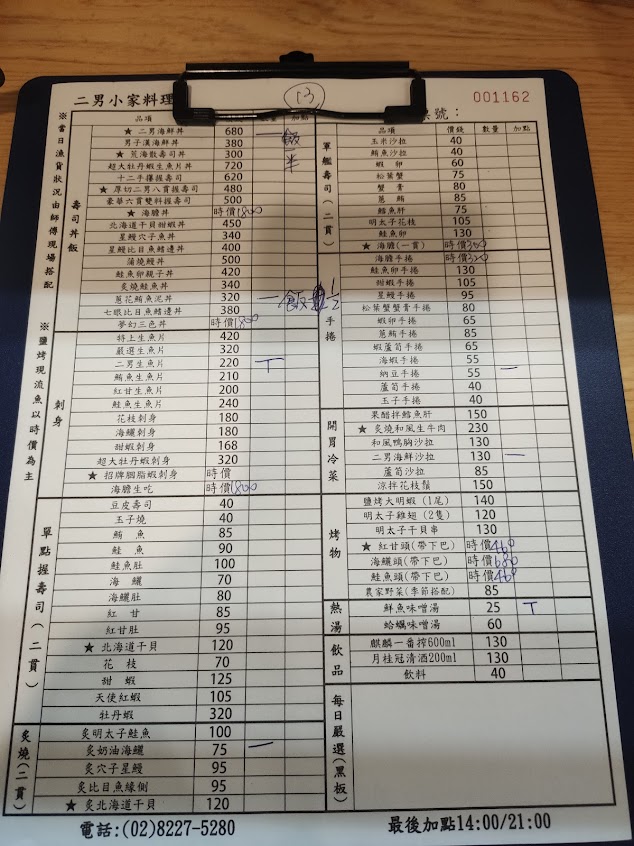 二男小家料理
13
001162
號：
※當日漁貨狀況由師傅現場搭配
※鹽烤現流魚以時價為主
加點
壽司丼飯
★ 二男海鮮丼 680 一 飯半
男子漢海鮮丼 380
★ 荒海散壽司丼 300
超大牡丹蝦生魚片丼 720
十二手握握壽司 620
★ 厚切二男八貫握壽司 480
豪華六貫雙料握壽司 500
★ 海膽丼 時價1800
北海道干貝甜蝦丼 450
星鰻穴子魚丼 340
星鰻比目魚鰭邊丼 400
蒲燒鰻丼 500
鮭魚卵親子丼 420
炙燒鮭魚丼 340
蔥花鮪魚泥丼 320 一 飯 1/2
七眼比目魚鰭邊丼 380
夢幻三色丼 時價1800
刺身
特上生魚片 420
嚴選生魚片 320
二男生魚片 220 T
鮪魚生魚片 210
紅甘生魚片 200
鮭魚生魚片 240
花枝刺身 180
海鱺刺身 180
甜蝦刺身 168
超大牡丹蝦刺身 320
★ 招牌胭脂蝦刺身 時價
海膽生吃 時價1800
單點握壽司(二貫)
豆皮壽司 40
玉子燒 40
鮪 魚 85
鮭 魚 90
鮭魚肚 100
海 鱺 70
海鱺肚 80
紅 甘 85
紅甘肚 95
★ 北海道干貝 120
花 枝 70
甜 蝦 125
天使紅蝦 105
牡丹蝦 320
炙燒(二貫)
炙明太子鮭魚 100
炙奶油海鱺 75 一
炙穴子星鰻 95
炙比目魚緣側 95
★ 炙北海道干貝 120
品項 價錢 數量 加點
軍艦壽司(二貫)
玉米沙拉 40
鮪魚沙拉 40
蝦 卵 60
松葉蟹 75
蟹 膏 80
蔥 鮪 85
鱈魚肝 75
明太子花枝 105
鮭魚卵 130
★ 海膽(一貫) 時價320
手捲
海膽手捲 時價320
鮭魚卵手捲 130
甜蝦手捲 105
星鰻手捲 95
松葉蟹蟹膏手捲 80
蝦卵手捲 65
蔥鮪手捲 85
蝦蘆筍手捲 65
海蝦手捲 55
納豆手捲 55 一
蘆筍手捲 40
玉子手捲 40
開胃冷菜
果醋拌鱈魚肝 150
★ 炙燒和風生牛肉 230
和風鴨胸沙拉 130
二男海鮮沙拉 130 一
蘆筍沙拉 85
涼拌花枝鬚 150
烤物
鹽烤大明蝦(1尾) 140
明太子雞翅(2隻) 120
明太子干貝串 130
★ 紅甘頭(帶下巴) 時價460
海鱺頭(帶下巴) 時價680
鮭魚頭(帶下巴) 時價460
農家野菜(季節搭配) 85
熱湯
鮮魚味噌湯 25 T
蛤蠣味噌湯 60
飲品
麒麟一番搾600ml 130
月桂冠清酒200ml 130
飲料 40
每日嚴選(黑板)
電話:(02)8227-5280
最後加點14:00/21:00